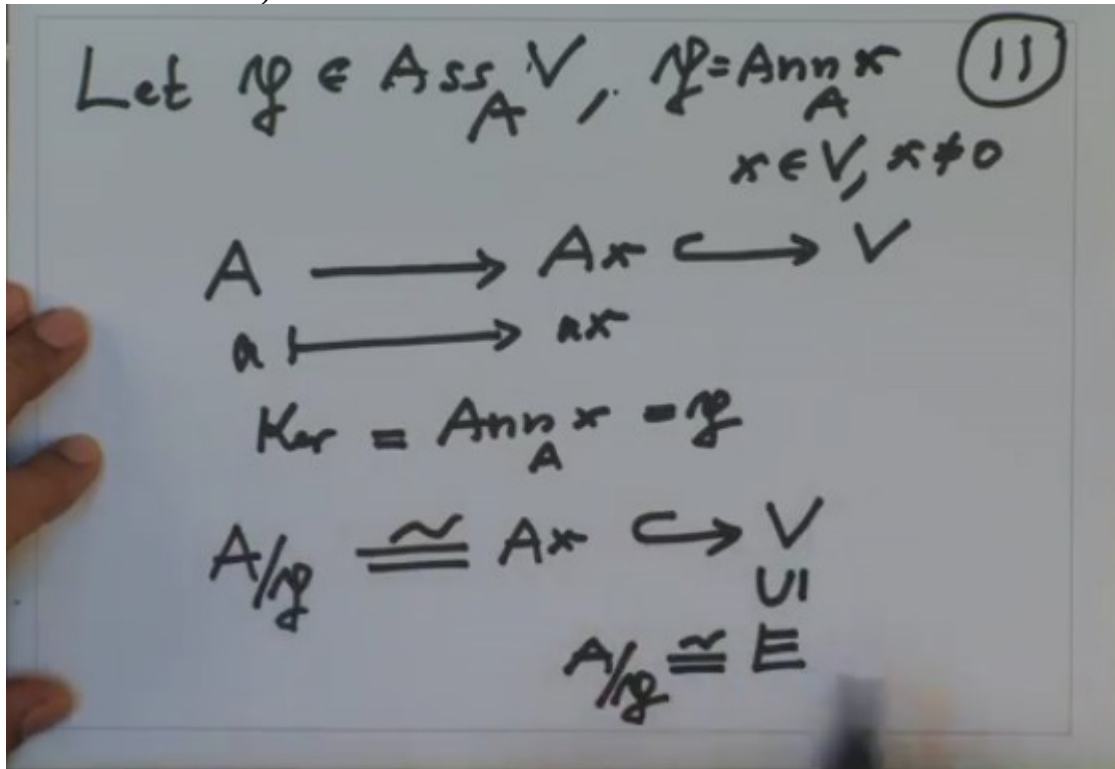 Let 𝔭 ∈ Ass_A V, 𝔭 = Ann_A x (11)
x ∈ V, x ≠ 0
A ⟶ Ax ↪ V
a ⟼ ax
Ker = Ann_A x = 𝔭
A/𝔭 ≅ Ax ↪ V
UI
A/𝔭 ≅ E